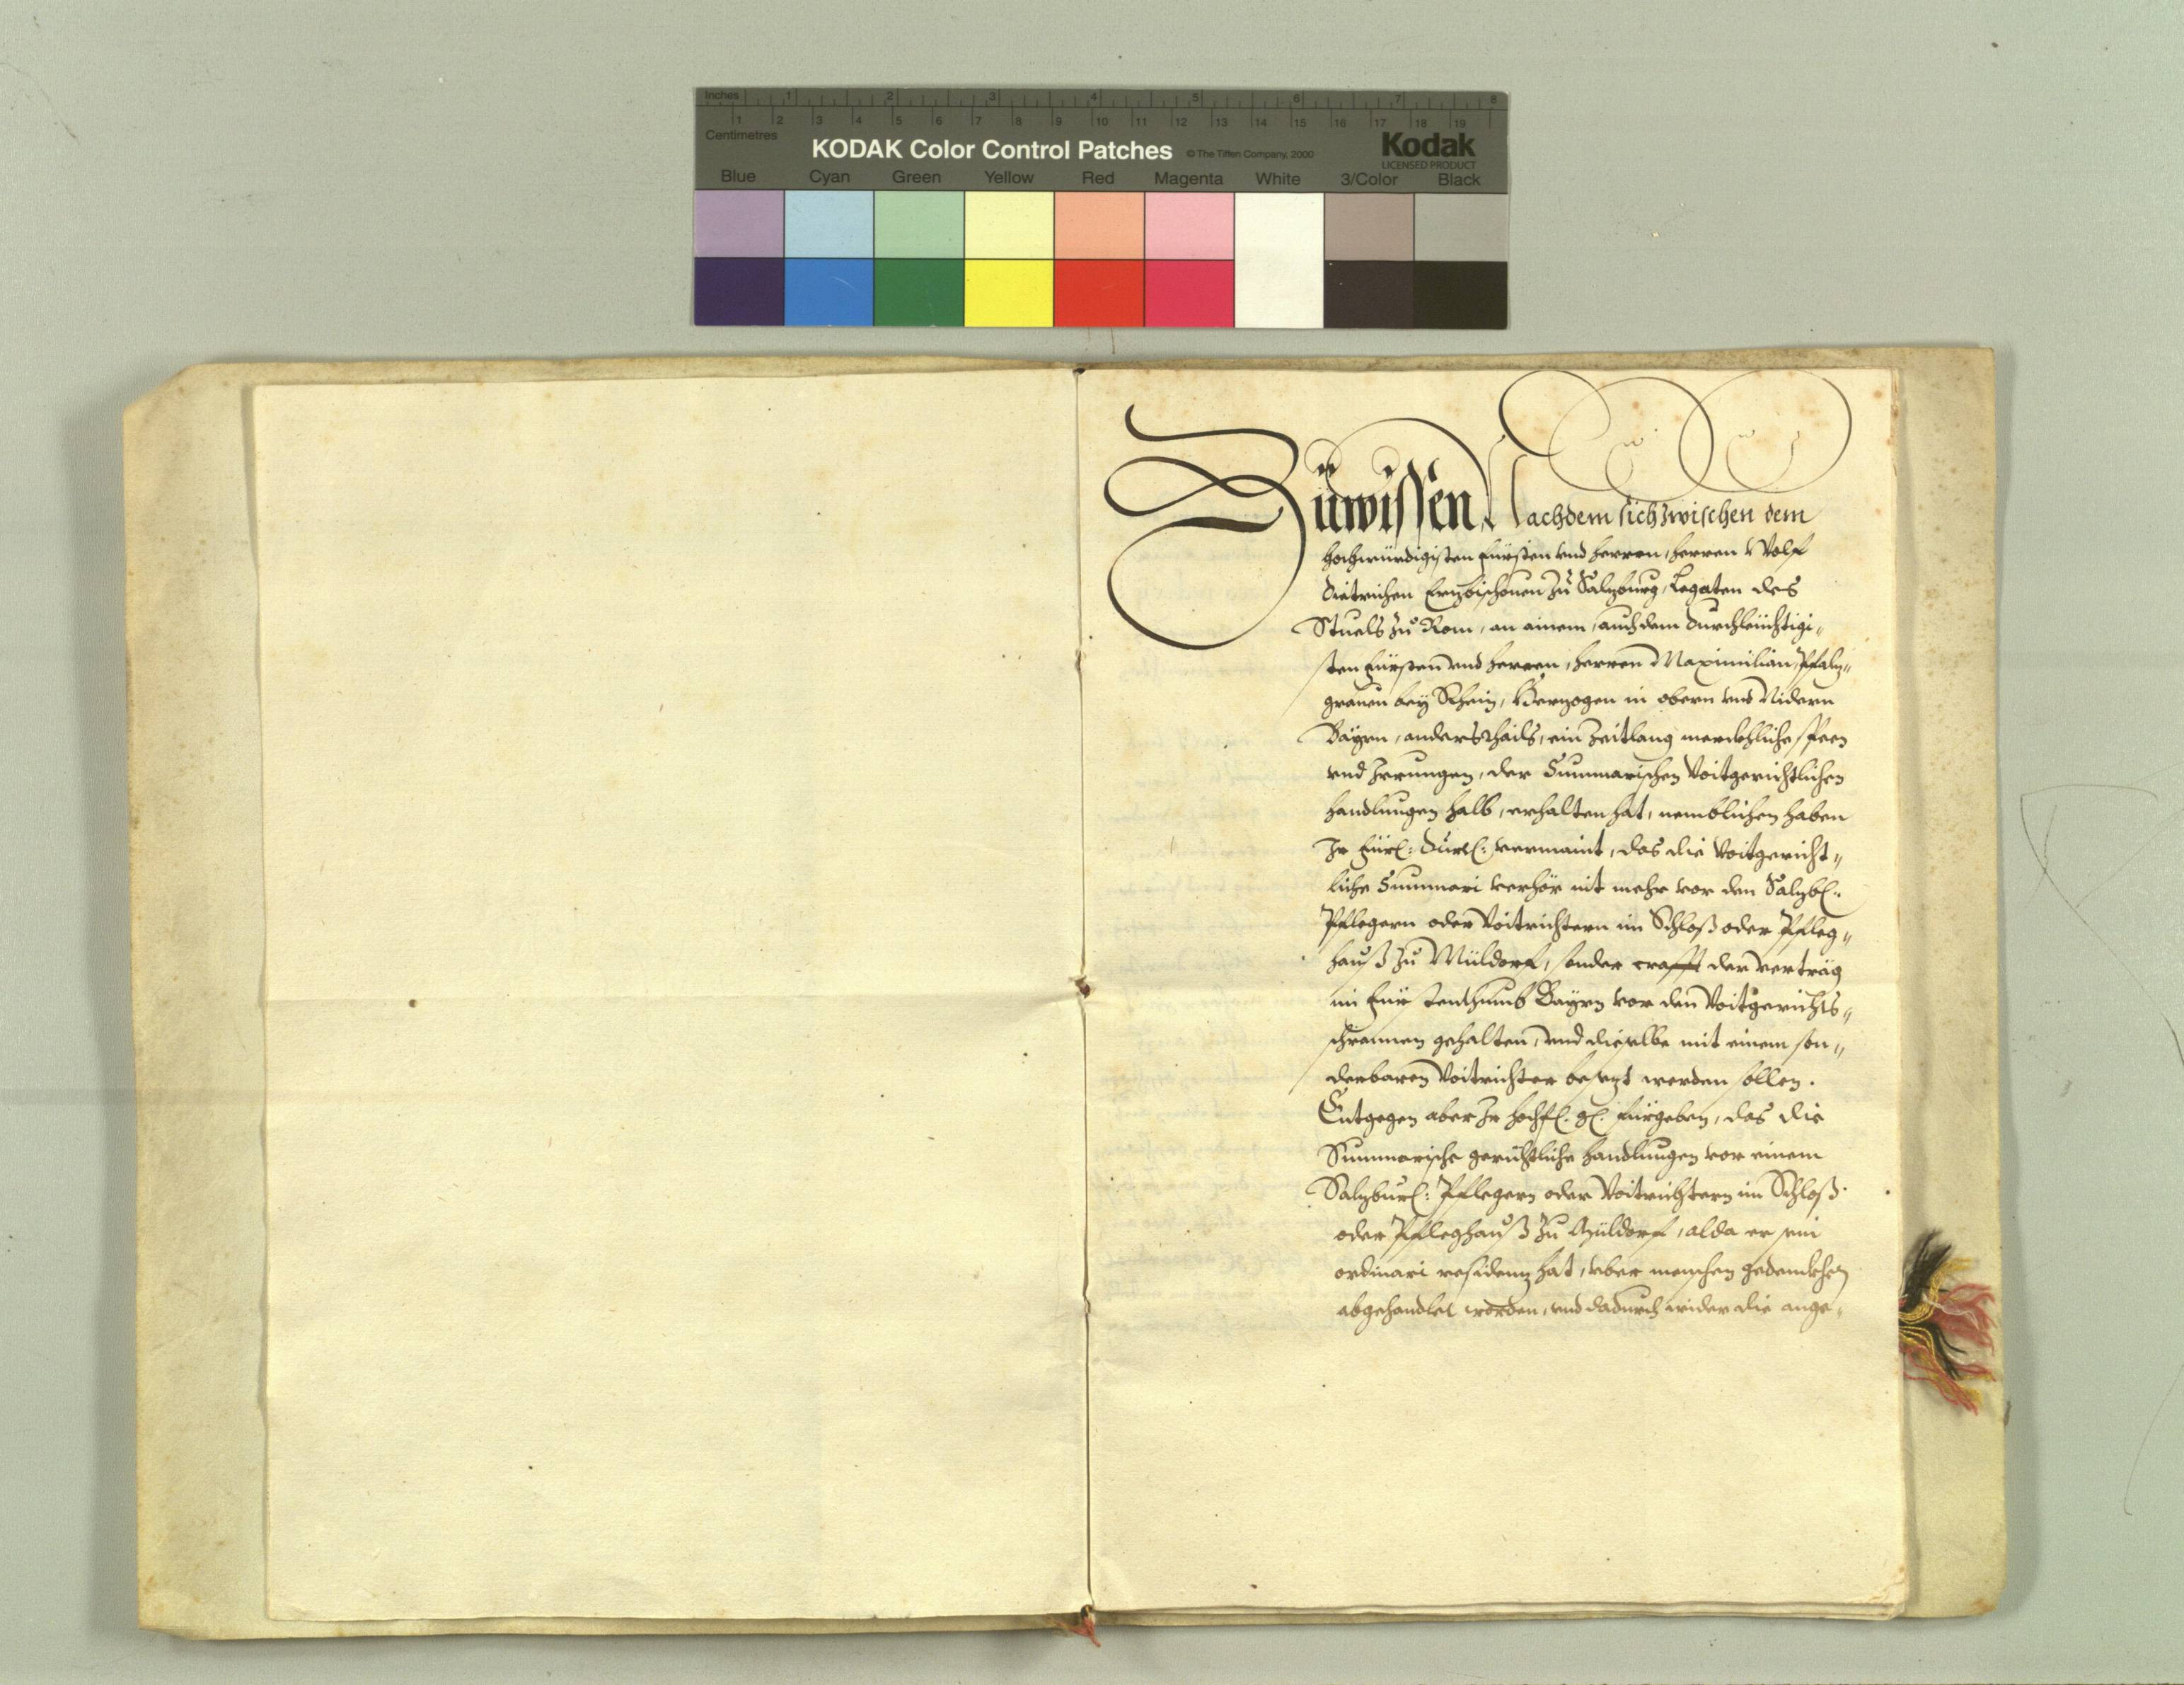 Inches 1 2 3 4 5 6 7 8
1 2 3 4 5 6 7 8 9 10 11 12 13 14 15 16 17 18 19
Centimetres
KODAK Color Control Patches © The Tiffen Company, 2000 Kodak
LICENSED PRODUCT
Blue Cyan Green Yellow Red Magenta White 3/Color Black
Zuwissen Nachdem sich zwischen dem
hochwürdigisten Fürsten vnd herren, herren Wolf
Dietrichen Erzbischouen zu Salzburg, Legaten des
Stuels zu Rom, an ainem, auch dem Durchleüchtigi„
sten Fürsten vnd herren, herren Maximilian, Pfalz„
grauen bey Rhein, Herzogen in obern vnd Nidern
Bayrn, anderstthails, ein Zeitlang merckhliche speen
vnd Irrungen, der Summarischen Voitgerichtlichen
handlungen halb, erhalten hat, nemblichen haben
Ir Fürl: Durl: vermaint, das die Voitgericht„
liche Summari verhör nit mehr vor den Salzbl:
Pflegern oder Voitrichtern im Schloß oder Pfleg„
hauß zu Müldorf, sonder crafft der verträg
im Fürstenthumb Bayrn vor den Voitgerichts„
schrannen gehalten, vnd dieselbe mit einem son„
derbaren Voitrichter besezt werden sollen.
Entgegen aber Ir hochfl. gl. fürgeben, das die
Summarische gerichtliche handlungen vor einem
Salzburl: Pflegern oder Voitrichtern im Schloß
oder Pfleghauß zu Müldorf, alda er sein
ordinari residenz hat, vber menschen gedenckhen
abgehandlet worden, vnd dadurch wider die ange„